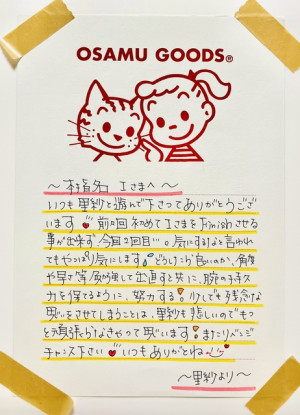 OSAMU GOODS®
〜本指名 Iさまへ〜
いつも里紗と遊んで下さってありがとうござ
います 前回初めてIさまをFinishさせる
事が出来ず、今回2回目…。気にするなと言われ
てもやっぱり気にします どうしたら良いのか、角度
や早さ等勉強して出直すと共に、腕の
力を保てるように、努力する 少しでも残念な
思いをさせてしまうことは、里紗も悲しいのでもっ
と頑張らなきゃって思います またリベンジ
チャンス下さい いつもありがとね
〜里紗より〜